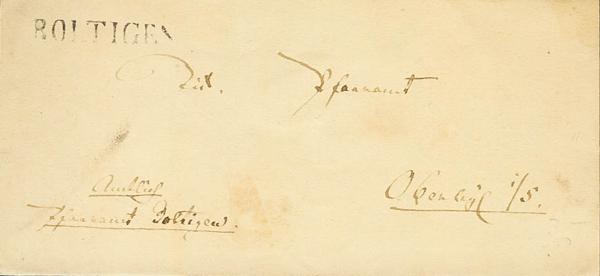 BOLTIGEN
Tit. Pfarramt
Amtlich
Pfarramt Boltigen.
Oberwyl i/S.